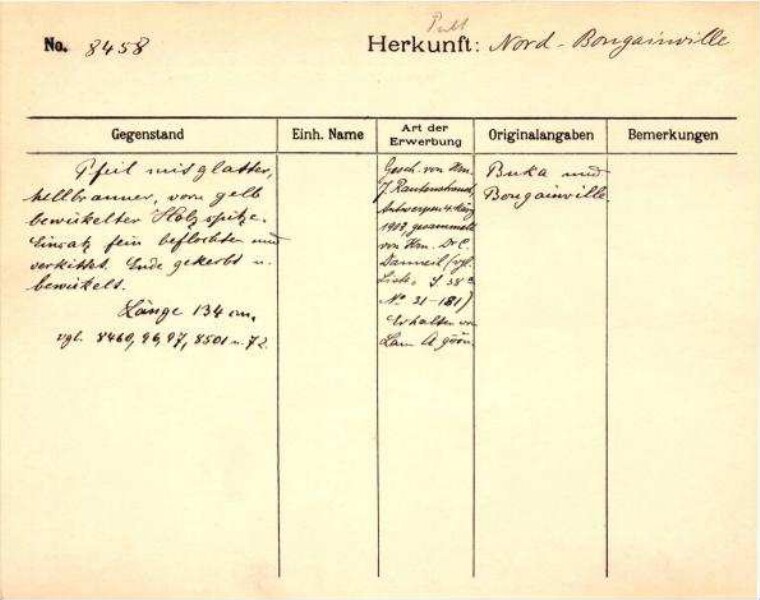 No. 8458
Herkunft: Nord-Bougainville
Gegenstand
Einh. Name
Art der Erwerbung
Originalangaben
Bemerkungen
Pfeil mit glatter,
hellbrauner, vorn gelb
bewickelter Holzspitze.
Einsatz fein beflochten und
verkittet. Ende gekerbt u.
bewickelt.
Länge 134 cm.
vgl. 8460, 96, 97, 8501 u. 72.
Gesch. von Hrn.
J. Rautenstrauch,
Antwerpen 4. März
1903, gesammelt
von Hrn. Dr. C.
Danneil (vgl.
Liste, S 38
No 31-181)
Erhalten von
Buka und
Bougainville.